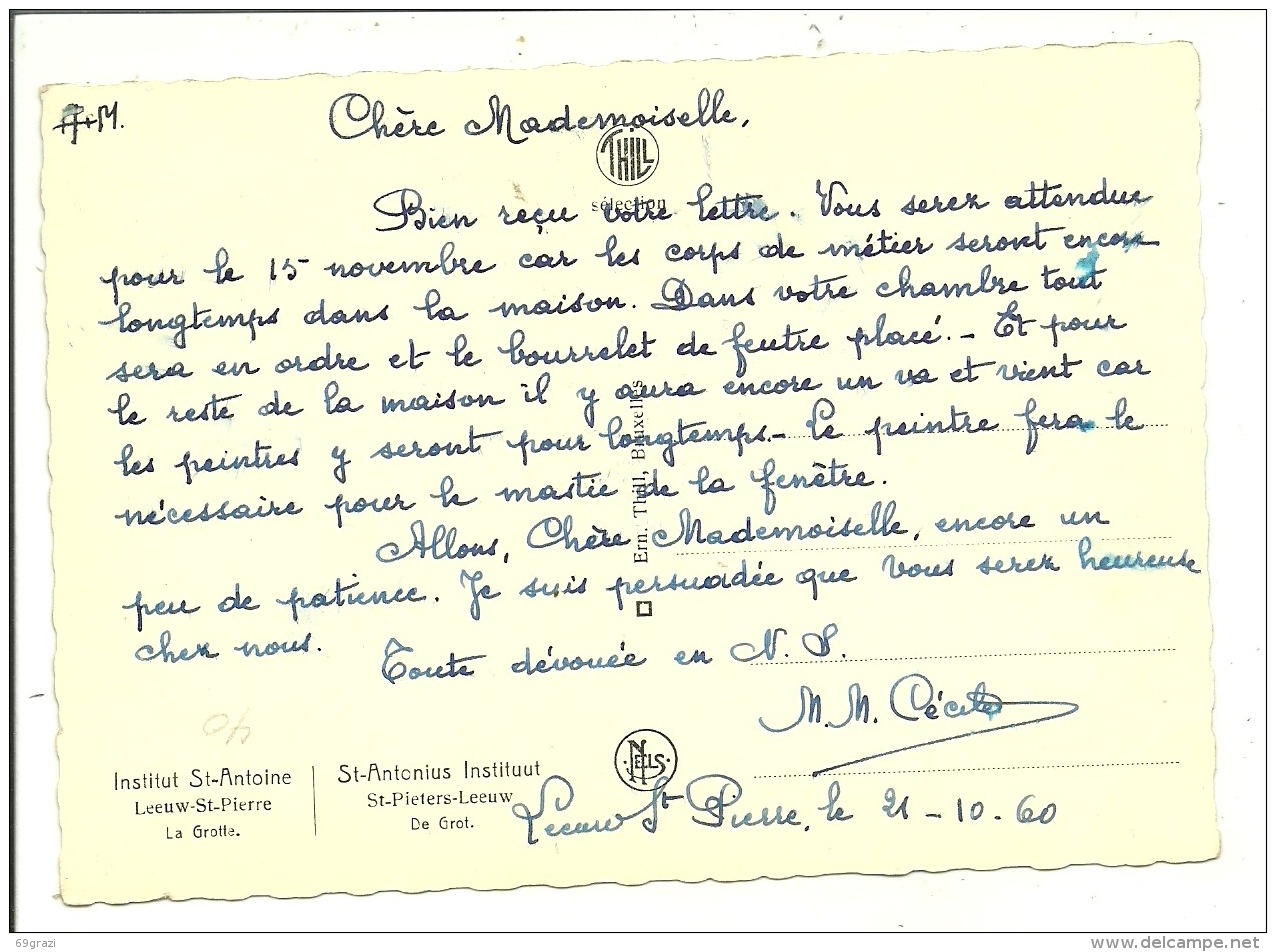 J+M.
Chère Mademoiselle,
THILL
sélection
Bien reçu votre lettre. Vous serez attendue
pour le 15 novembre car les corps de métier seront encore
longtemps dans la maison. Dans votre chambre tout
sera en ordre et le bourrelet de feutre placé. - Et pour
le reste de la maison il y aura encore un va et vient car
les peintres y seront pour longtemps. - Le peintre fera le
nécessaire pour le mastic de la fenêtre.
Allons, Chère Mademoiselle, encore un
peu de patience. Je suis persuadée que vous serez heureuse
chez nous.
Toute dévouée en N. S.
M. M. Cécile
Ern. Thill, Bruxelles
NELS
40
Institut St-Antoine
Leeuw-St-Pierre
La Grotte.
St-Antonius Instituut
St-Pieters-Leeuw
De Grot.
Leeuw St Pierre, le 21 - 10 - 60
69grazi
www.delcampe.net